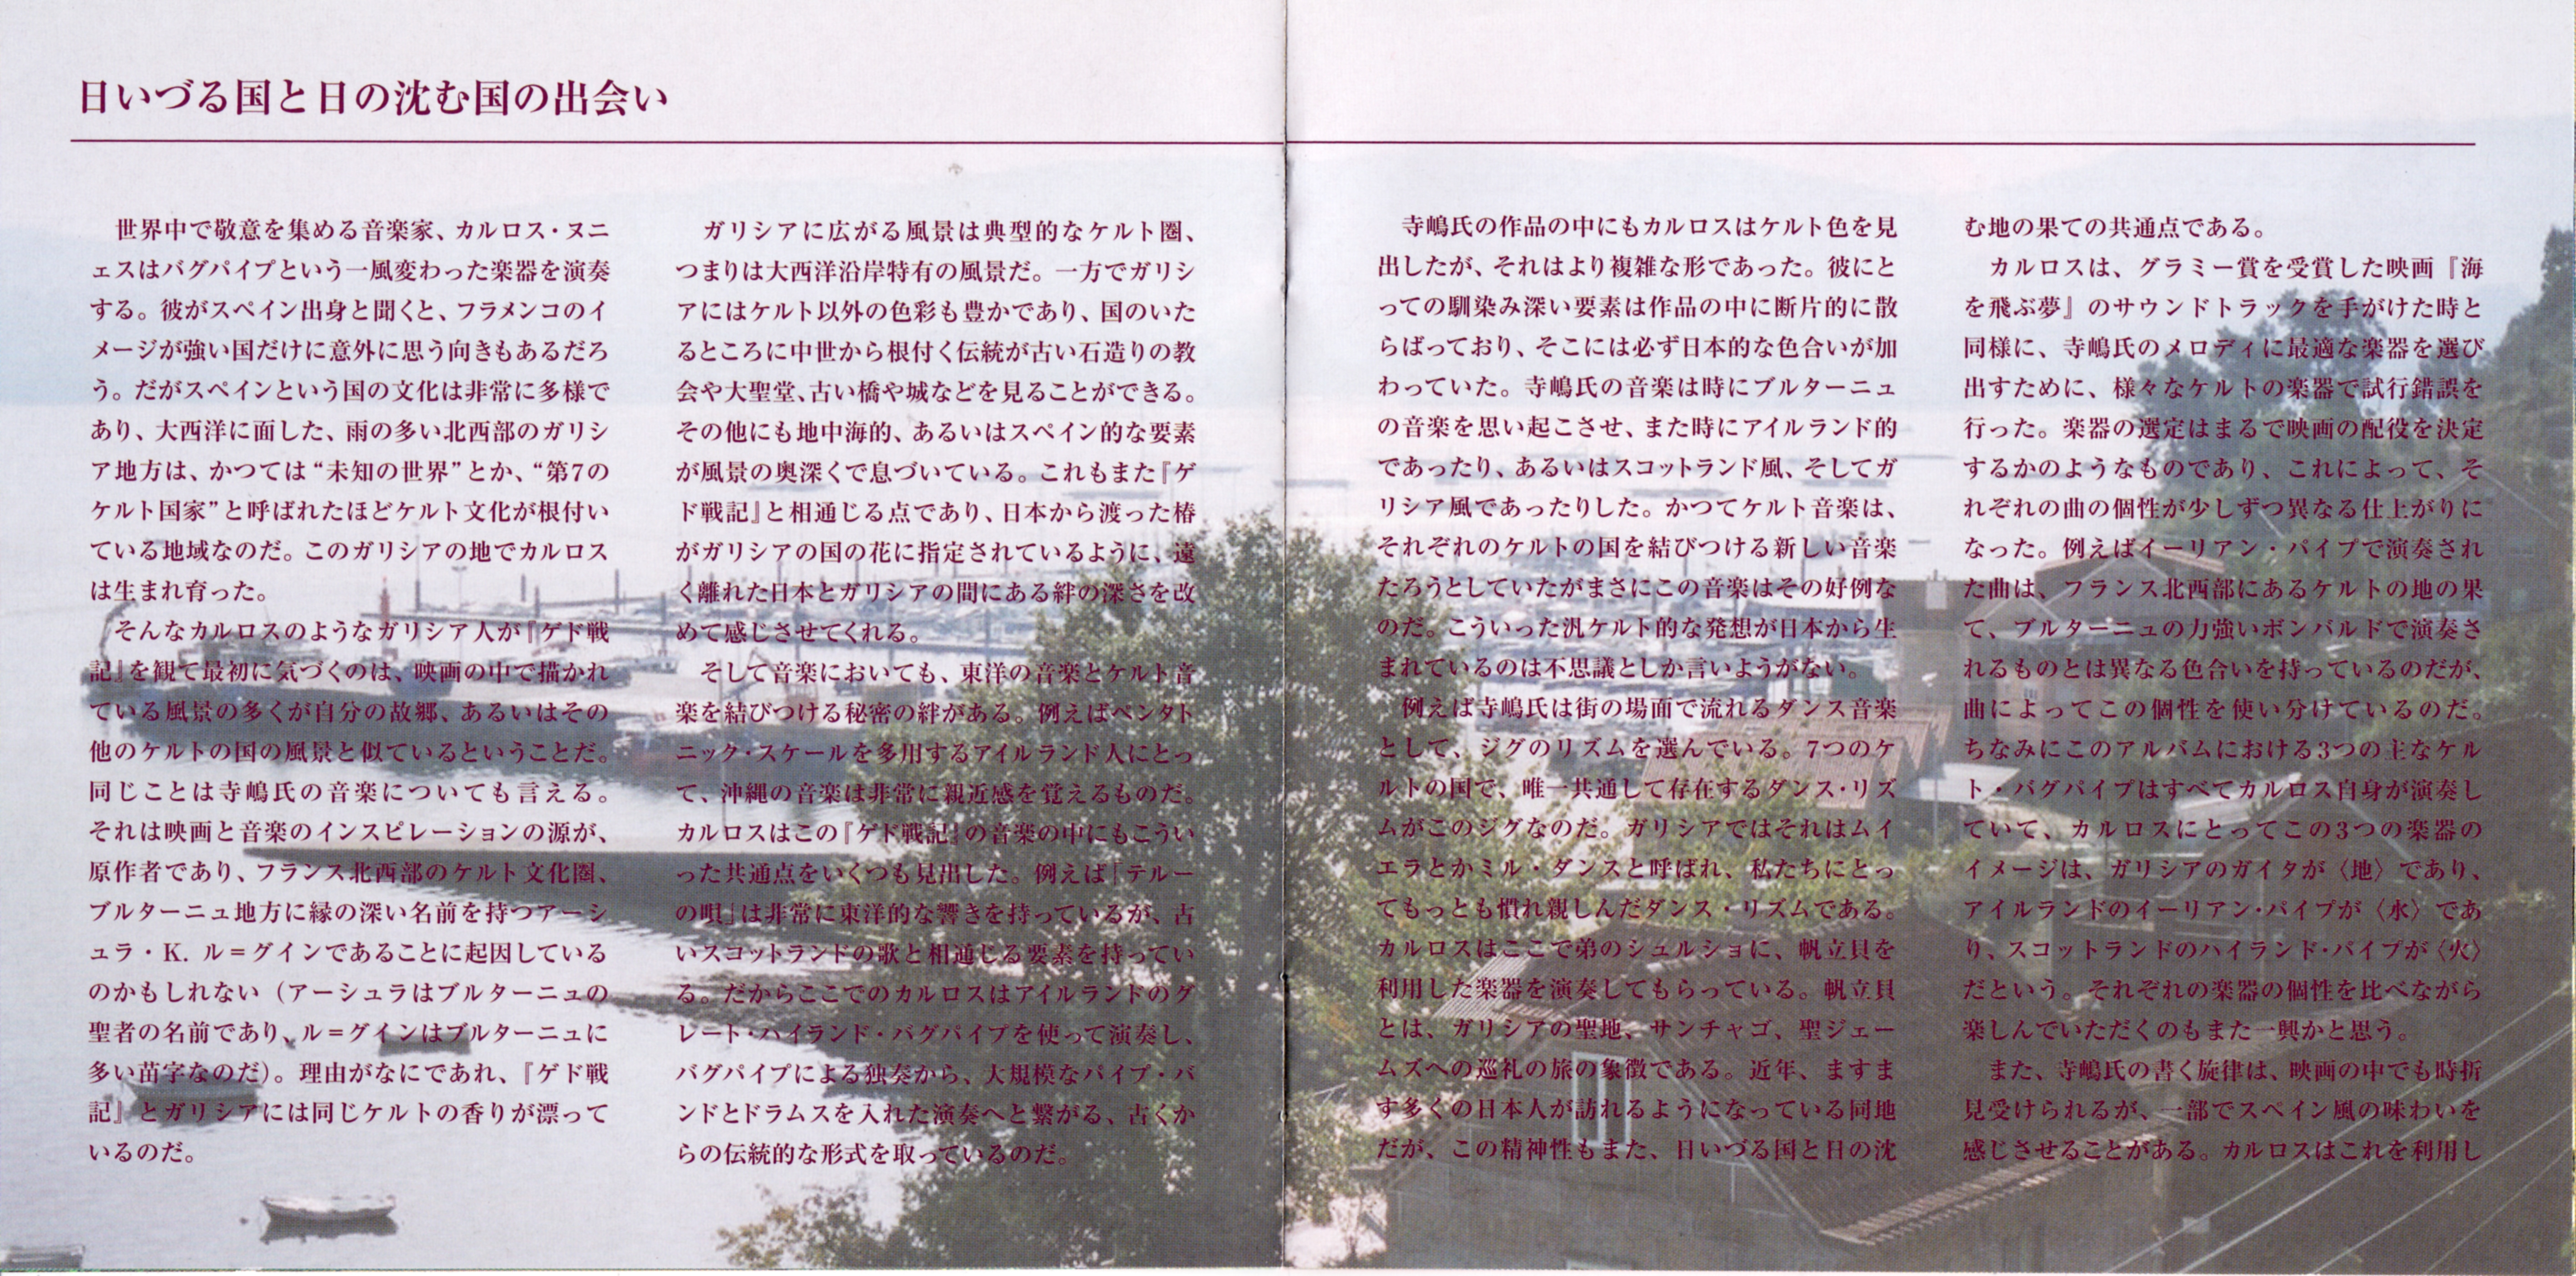 日いづる国と日の沈む国の出会い
世界中で敬意を集める音楽家、カルロス・ヌニ
ェスはバグパイプという一風変わった楽器を演奏
する。彼がスペイン出身と聞くと、フラメンコのイ
メージが強い国だけに意外に思う向きもあるだろ
う。だがスペインという国の文化は非常に多様で
あり、大西洋に面した、雨の多い北西部のガリシ
ア地方は、かつては“未知の世界”とか、“第7の
ケルト国家”と呼ばれたほどケルト文化が根付い
ている地域なのだ。このガリシアの地でカルロス
は生まれ育った。
そんなカルロスのようなガリシア人が『ゲド戦
記』を観て最初に気づくのは、映画の中で描かれ
ている風景の多くが自分の故郷、あるいはその
他のケルトの国の風景と似ているということだ。
同じことは寺嶋氏の音楽についても言える。
それは映画と音楽のインスピレーションの源が、
原作者であり、フランス北西部のケルト文化圏、
ブルターニュ地方に縁の深い名前を持つアーシ
ュラ・K. ル＝グインであることに起因している
のかもしれない（アーシュラはブルターニュの
聖者の名前であり、ル＝グインはブルターニュに
多い苗字なのだ）。理由がなにであれ、『ゲド戦
記』とガリシアには同じケルトの香りが漂って
いるのだ。
ガリシアに広がる風景は典型的なケルト圏、
つまりは大西洋沿岸特有の風景だ。一方でガリシ
アにはケルト以外の色彩も豊かであり、国のいた
るところに中世から根付く伝統が古い石造りの教
会や大聖堂、古い橋や城などを見ることができる。
その他にも地中海的、あるいはスペイン的な要素
が風景の奥深くで息づいている。これもまた『ゲ
ド戦記』と相通じる点であり、日本から渡った椿
がガリシアの国の花に指定されているように、遠
く離れた日本とガリシアの間にある絆の深さを改
めて感じさせてくれる。
そして音楽においても、東洋の音楽とケルト音
楽を結びつける秘密の絆がある。例えばペンタト
ニック・スケールを多用するアイルランド人にとっ
て、沖縄の音楽は非常に親近感を覚えるものだ。
カルロスはこの『ゲド戦記』の音楽の中にもこうい
った共通点をいくつも見出した。例えば「テルー
の唄」は非常に東洋的な響きを持っているが、古
いスコットランドの歌と相通じる要素を持ってい
る。だからここでのカルロスはアイルランドのグ
レート・ハイランド・バグパイプを使って演奏し、
バグパイプによる独奏から、大規模なパイプ・バ
ンドとドラムスを入れた演奏へと繋がる、古くか
らの伝統的な形式を取っているのだ。
寺嶋氏の作品の中にもカルロスはケルト色を見
出したが、それはより複雑な形であった。彼にと
っての馴染み深い要素は作品の中に断片的に散
らばっており、そこには必ず日本的な色合いが加
わっていた。寺嶋氏の音楽は時にブルターニュ
の音楽を思い起こさせ、また時にアイルランド的
であったり、あるいはスコットランド風、そしてガ
リシア風であったりした。かつてケルト音楽は、
それぞれのケルトの国を結びつける新しい音楽
たろうとしていたがまさにこの音楽はその好例な
のだ。こういった汎ケルト的な発想が日本から生
まれているのは不思議としか言いようがない。
例えば寺嶋氏は街の場面で流れるダンス音楽
として、ジグのリズムを選んでいる。7つのケ
ルトの国で、唯一共通して存在するダンス・リズ
ムがこのジグなのだ。ガリシアではそれはムイ
エラとかミル・ダンスと呼ばれ、私たちにとっ
てもっとも慣れ親しんだダンス・リズムである。
カルロスはここで弟のシュルショに、帆立貝を
利用した楽器を演奏してもらっている。帆立貝
とは、ガリシアの聖地、サンチャゴ、聖ジェー
ムズへの巡礼の旅の象徴である。近年、ますま
す多くの日本人が訪れるようになっている同地
だが、この精神性もまた、日いづる国と日の沈
む地の果ての共通点である。
カルロスは、グラミー賞を受賞した映画『海
を飛ぶ夢』のサウンドトラックを手がけた時と
同様に、寺嶋氏のメロディに最適な楽器を選び
出すために、様々なケルトの楽器で試行錯誤を
行った。楽器の選定はまるで映画の配役を決定
するかのようなものであり、これによって、そ
れぞれの曲の個性が少しずつ異なる仕上がりに
なった。例えばイーリアン・パイプで演奏され
た曲は、フランス北西部にあるケルトの地の果
て、ブルターニュの力強いボンバルドで演奏さ
れるものとは異なる色合いを持っているのだが、
曲によってこの個性を使い分けているのだ。
ちなみにこのアルバムにおける3つの主なケル
ト・バグパイプはすべてカルロス自身が演奏し
ていて、カルロスにとってこの3つの楽器の
イメージは、ガリシアのガイタが〈地〉であり、
アイルランドのイーリアン・パイプが〈水〉であ
り、スコットランドのハイランド・パイプが〈火〉
だという。それぞれの楽器の個性を比べながら
楽しんでいただくのもまた一興かと思う。
また、寺嶋氏の書く旋律は、映画の中でも時折
見受けられるが、一部でスペイン風の味わいを
感じさせることがある。カルロスはこれを利用し